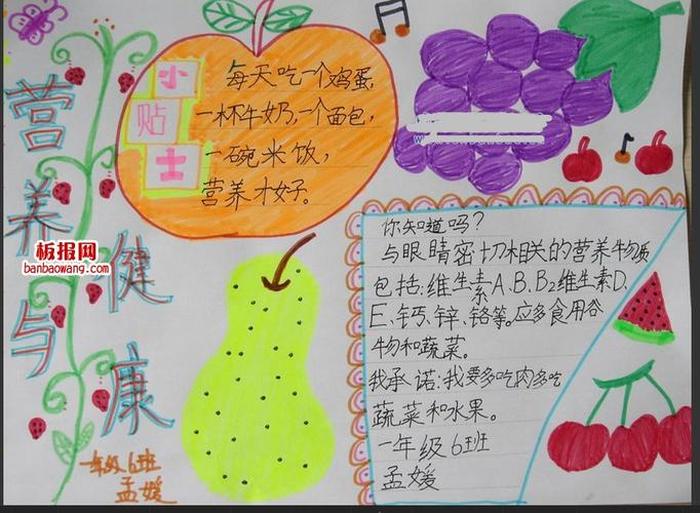 营养与
健康
小贴士
每天吃一个鸡蛋,
一杯牛奶,一个面包,
一碗米饭,
营养才好。
你知道吗?
与眼睛密切相关的营养物质
包括:维生素A、B、B2维生素D、
E、钙、锌、铬等。应多食用谷
物和蔬菜。
我承诺:我要多吃肉多吃
蔬菜和水果。
一年级6班
孟媛
一年级6班
孟媛
板报网
banbaowang.com